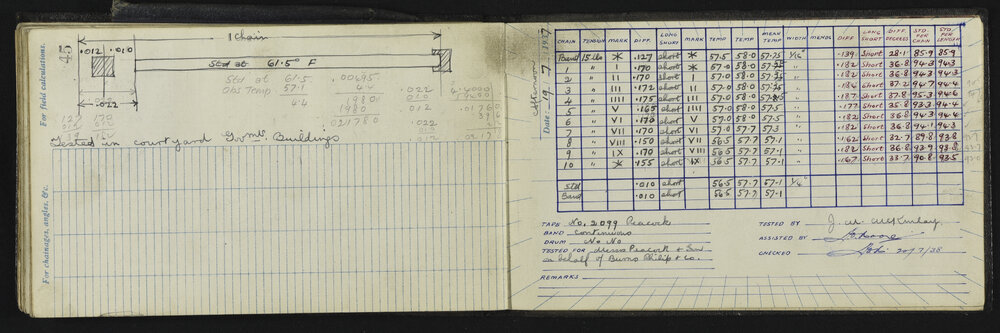 For field calculations.
45
1 Chain
.012 .010
Std at 61.5° F
.022
Std at 61.5 .00695
Obs Temp 57.1 44
4.4 1980
1980
.021780
.022
.012
.022
.01760
Tested in courtyard Govmt Buildings
For chainages, angles, &c.
Afternoon
Date 19-7-1937
CHAIN TENSION MARK DIFF. LONG SHORT MARK TEMP TEMP MEAN TEMP WIDTH MEMOS DIFF LONG SHORT DIFF. DEGREES STD. PER CHAIN STD. PER LENGTH
Band 15 lbs * .127 short * 57.5 58.0 57.75 1/16" .139 Short 28.1 85.9 85.9
1 " I .170 short * 57.0 58.0 " .182 Short 36.8 94.3 94.3
2 " II .170 short I 57.0 58.0 " .182 Short 36.8 94.3 94.3
3 " III .172 short II 57.0 58.0 " .184 Short 37.2 94.7 94.4
4 " IIII .175 short III 57.0 58.0 " .187 Short 37.8 95.3 94.6
5 " V .165 short IIII 57.0 58.0 57.5 " .177 Short 35.8 93.3 94.4
6 " VI .170 short V 57.0 58.0 57.5 " .182 Short 36.8 94.3 94.4
7 " VII .170 short VI 57.0 57.7 57.3 " .182 Short 36.8 94.1 94.3
8 " VIII .150 short VII 56.5 57.7 57.1 " .162 Short 32.7 89.8 93.8
9 " IX .170 short VIII 56.5 57.7 57.1 " .182 Short 36.8 93.9 93.8
10 " * .155 short IX 56.5 57.7 57.1 " .167 Short 33.7 90.8 93.5
Std .010 short 56.5 57.7 57.1 1/16"
Band .010 short 56.5 57.7 57.1
TAPE No. 2099 Peacock
BAND Continuous
DRUM No No
TESTED FOR Messrs Peacock & Son
on behalf of Burns Philip & Co.
REMARKS
TESTED BY J. M. McKinlay
ASSISTED BY
CHECKED 20/7/38